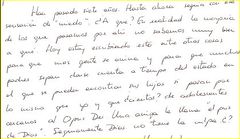 Han pasado siete años. Hasta ahora seguía con esa
sensación de "miedo". ¿A qué? En realidad la mayoría
de los que pasamos por ahí no sabemos muy bien
a qué. Hoy estoy escribiendo esto entre otras cosas
para que más gente se anime y para que muchos
padres sepan darse cuenta a tiempo del estado en
el que se pueden encontrar sus hijos o pasar por
lo mismo que yo y que decirles? de sentimientos
cercanos al Opus Dei. Una amiga le llama "el
de Dios". Seguramente Dios no tiene la culpa